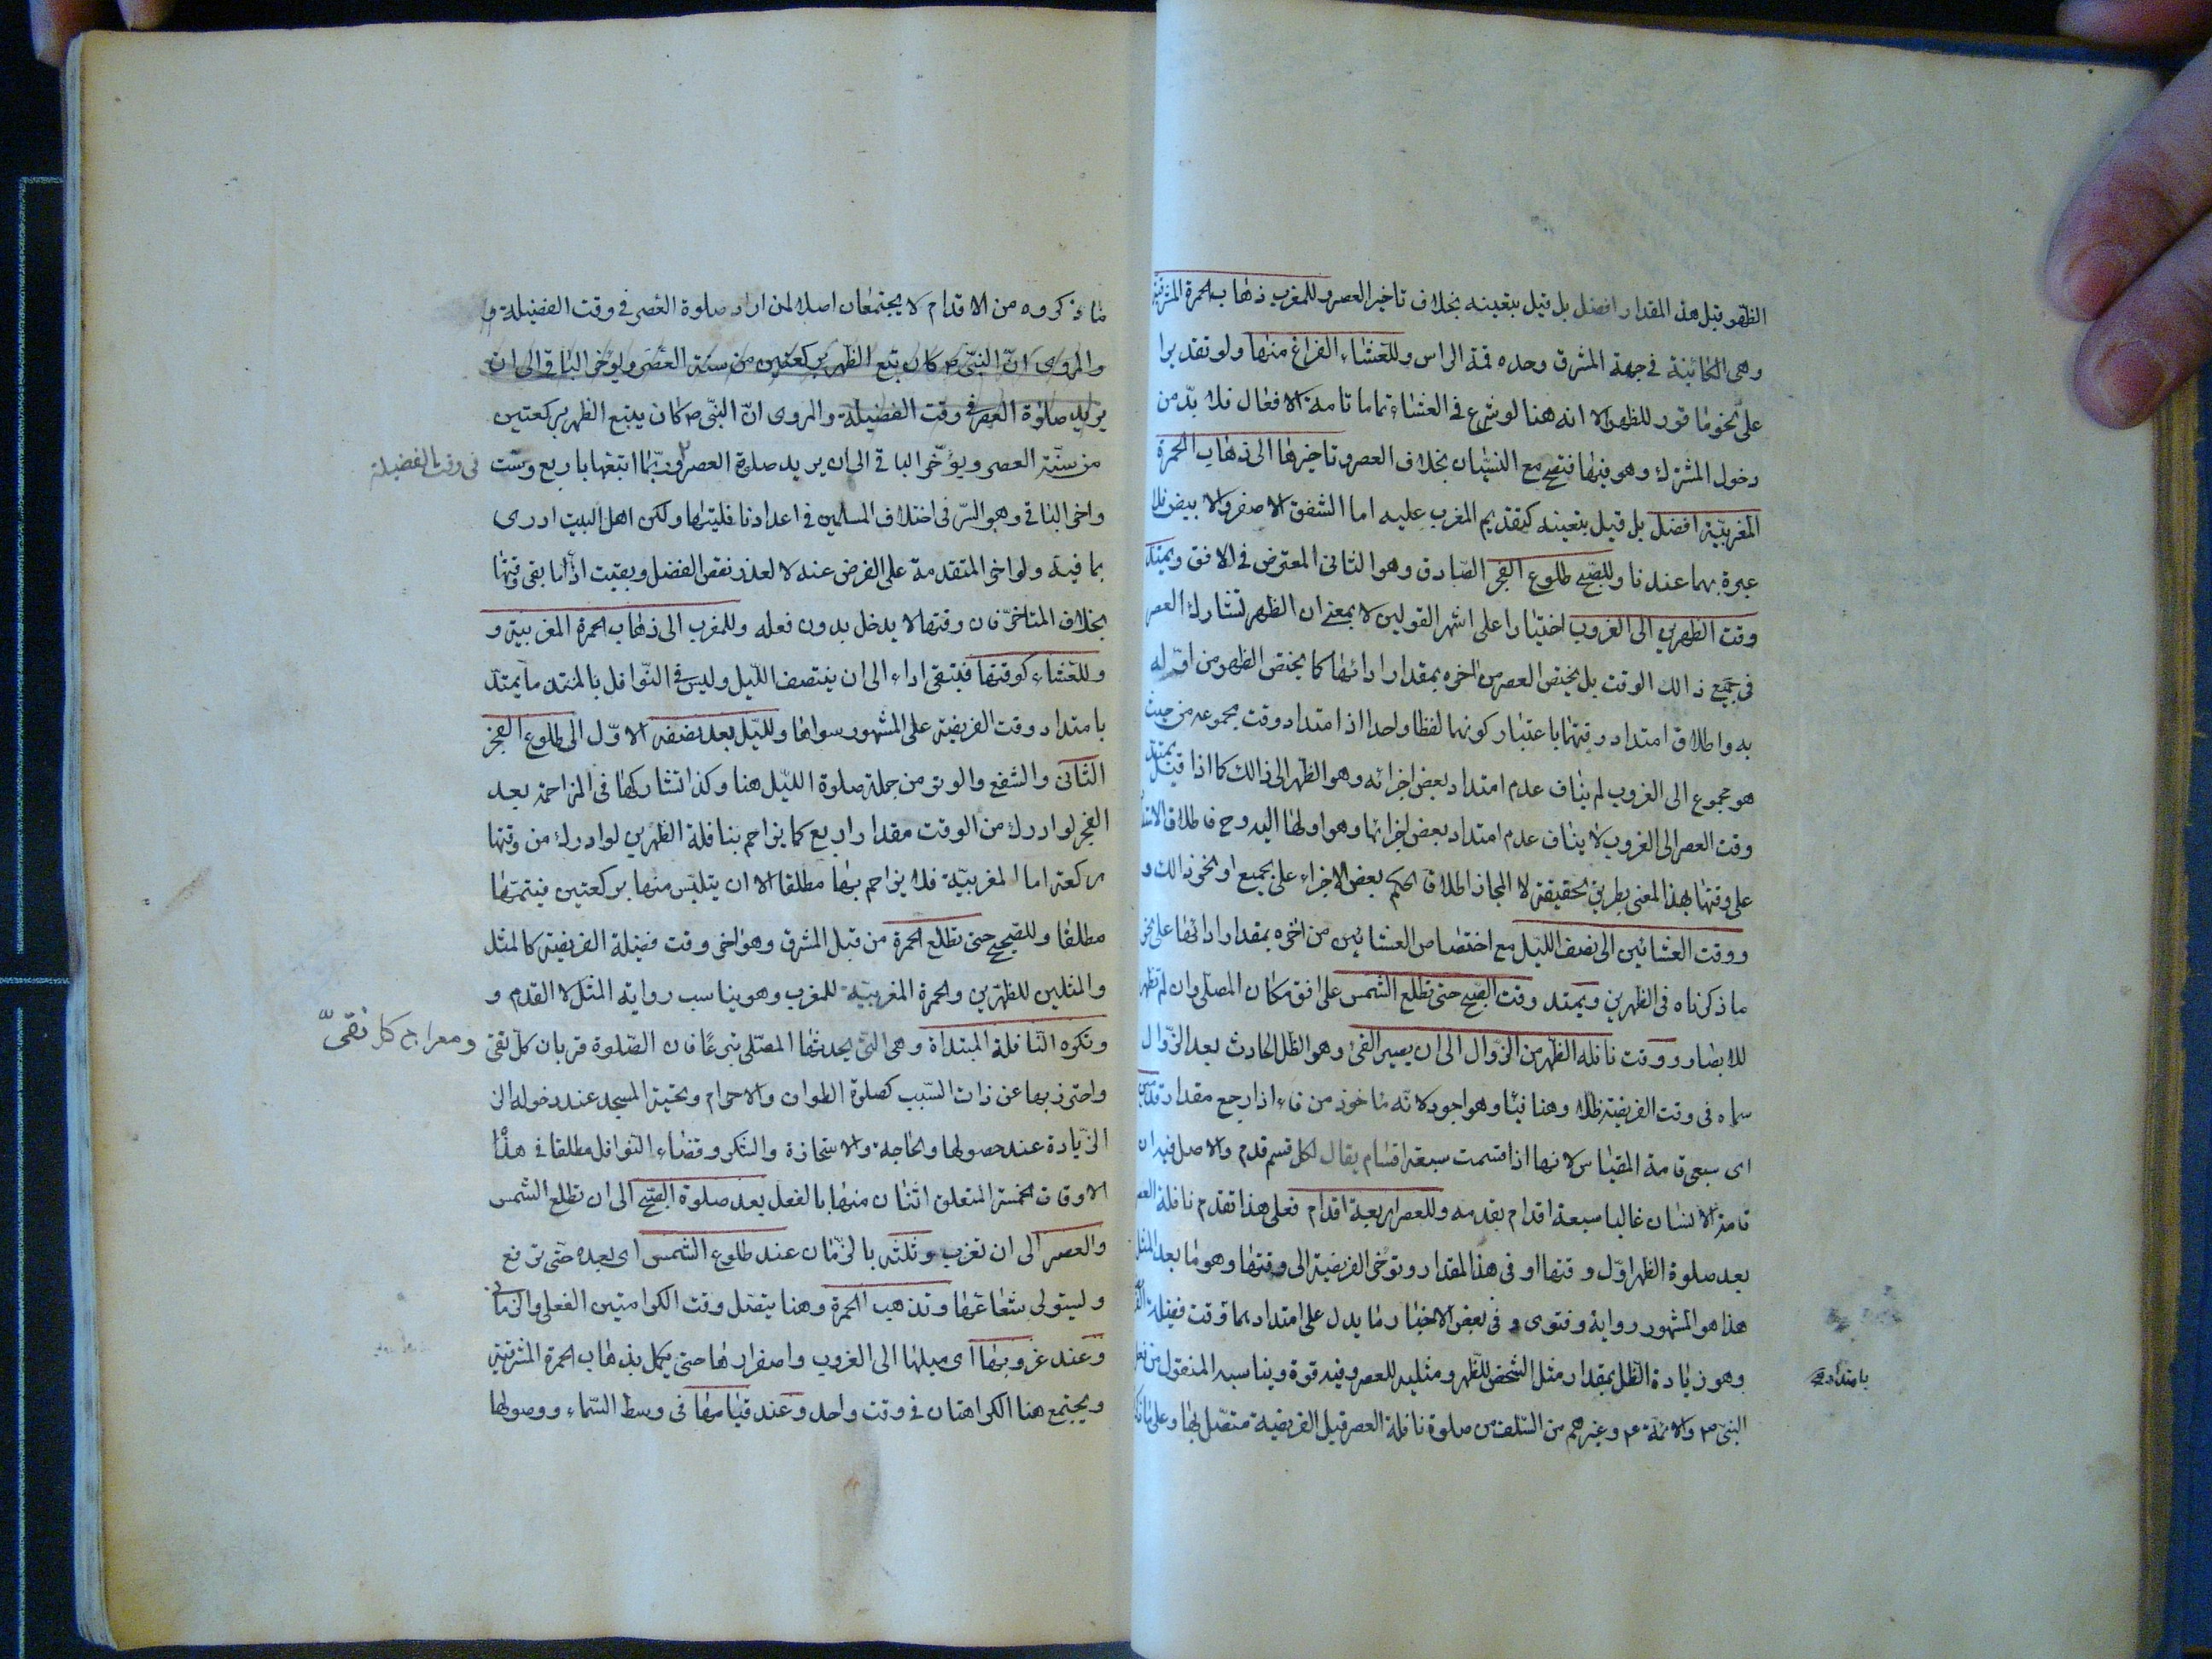 الظهر قبل هذا المقدار افضل بل قيل بتعينه بخلاف تاخير العصر وللمغرب ذهاب الحمرة المشرقية
وهى الكائنة فى جهة المشرق وحده قمة الراس وللعشاء الفراغ منها ولو تقديرا
على نحو ما قرر للظهر الا انه هنا لو شرع فى العشاء تماما تامة الافعال فلا بدّ من
دخول المشترك وهو فيها فتصح مع النسيان بخلاف العصر وتاخيرها الى ذهاب الحمرة
المغربيّة افضل بل قيل بتعينه كتقديم المغرب عليه اما الشفق الاصفر والابيض فلا
عبرة بهما عندنا وللصّبح طلوع الفجر الصّادق وهو الثانى المعترض فى الافق ويمتد
وقت الظهرين الى الغروب اختيارا على اشهر القولين لا بمعنى ان الظهر تشارك العصر
فى جميع ذالك الوقت بل يختص العصر من اخره بمقدار ادائها كما يختص الظهر من اوّله
به واطلاق امتداد وقتهما باعتبار كونهما لفظا واحدا اذا امتداد وقت مجموعه من حيث
هو مجموع الى الغروب لم يناف عدم امتداد بعض اجزائه وهو الظهر الى ذالك كما اذا قيل يمتد
وقت العصر الى الغروب لا يناف عدم امتداد بعض اجزائها وهو اولها اليه وح فاطلاق الامتداد
على وقتهما بهذا المعنى بطريق الحقيقة لا المجاز اطلاق الحكم بعض الاجزاء على الجميع او نحو ذالك و
ووقت العشائين الى نصف الليل مع اختصاص العشائين من اخره بمقدار ادائها على نحو
ما ذكرناه فى الظهرين ويمتد وقت الصّبح حتى تطلع الشمس على افق مكان المصلى وان لم تظهر
للابصار ووقت نافلة الظهر من الزّوال الى ان يصير الفئ وهو الظل الحادث بعد الزّوال
سماه فى وقت الفريضة ظلا وهنا فيئا وهو اجود لانّه ماخوذ من فاء اذا رجع مقدار قدمين
اى سبعى قامة المقياس لانها اذا قسمت سبعة اقسام يقال لكل قسم قدم والاصل فيه ان
قامة الانسان غالبا سبعة اقدام بقدمه وللعصر اربعة اقدام فعلى هذا تقدم نافلة العصر
بعد صلوة الظهر اوّل وقتها او فى هذا المقدار وتؤخر الفريضة الى وقتها وهو ما بعد المثل
هذا هو المشهور رواية وفتوى و فى بعض الاخبار ما يدل على امتدادهما وقت فضيلة
وهو زيادة الظل بمقدار مثل الشخص للظهر ومثليه للعصر وفيه قوة ويناسبه المنقول من فعل
النبى ص والائمة ع وغيرهم من السّلف من صلوة نافلة العصر قبل الفريضة متصلة بها وعلى
بامتدادهما
ما ذكروه من الاقدام لا يجتمعان اصلا لمن اراد صلوة العصر فى وقت الفضيلة و
والمروى انّ النبىّ ص كان يتبع الظهر بركعتين من سنّة العصر ويؤخر الباقى الى ان
يريد صلوة العصر فى وقت الفضيلة والمروى انّ النبىّ ص كان يتبع الظهر بركعتين
من سنّة العصر ويؤخّر الباقى الى ان يريد صلوة العصر وربّما اتبعها باربع وستّ
فى وقت الفضيلة
واخر الباقى وهو السّر فى اختلاف المسلمين فى اعداد نافلتيها ولكن اهل البيت ادرى
بما فيه ولو اخر المتقدمة على الفرض عنه لا لعذر نقص الفضل وبقيت اداء ما بقى وقتها
بخلاف المتاخرّ فان وقتها لا يدخل بدون فعله وللمغرب الى ذهاب الحمرة المغربية و
وللعشاء كوقتها فيتبقى اداء الى ان ينتصف اللّيل وليس فى النّوافل ما يمتدّ
بامتداد وقت الفريضة على المشهور سواها وللّيل بعد نصفه الاوّل الى طلوع الفجر
الثانى والشفع والوتر من جملة صلوة الليل هنا وكذا تشاركها فى المزاحمة بعد
الفجر لو ادرك من الوقت مقدار اربع كما يزاحم بنافلة الظهرين لو ادرك من وقتها
ركعة اما المغربيّة فلا يزاحم بها مطلقا الا ان يتلبّس منها بركعتين فيتمّها
مطلقا وللصّبح حتى تطلع الحمرة من قبل المشرق وهو اخر وقت فضيلة الفريضة كالمثل
والمثلين للظهرين والحمرة المغربيّة للمغرب وهو يناسب رواية المثل لا القدم و
وتكره النافلة المبتداة وهى التى يحدثها المصلّى تبرعًا فان الصّلوة قربان كل تقى
ومعراج كل تقىّ
واحترز بها عن ذات السّبب كصلوة الطواف والاحرام وتحية المسجد عند دخوله
الزّيارة عند حصولها والحاجة والاستخارة والشكر وقضاء النّوافل مطلقا فى هذه
الاوقات الخمسة المتعلق اثنان منها بالفعل بعد صلوة الصّبح الى ان تطلع الشمس
والعصر الى ان تغرب وثلثه بالزّمان عند طلوع الشمس اى بعده حتّى ترتفع
وليستولى شعاعها وتذهب الحمرة وهنا يتصل وقت الكراهتين الفعلى والزمانى
وعند غروبها اى ميلها الى الغروب واصفرارها حتى يكمل بذهاب الحمرة المشرقية
ويجتمع هنا الكراهتان فى وقت واحد وعند قيامها فى وسط السّماء ووصولها